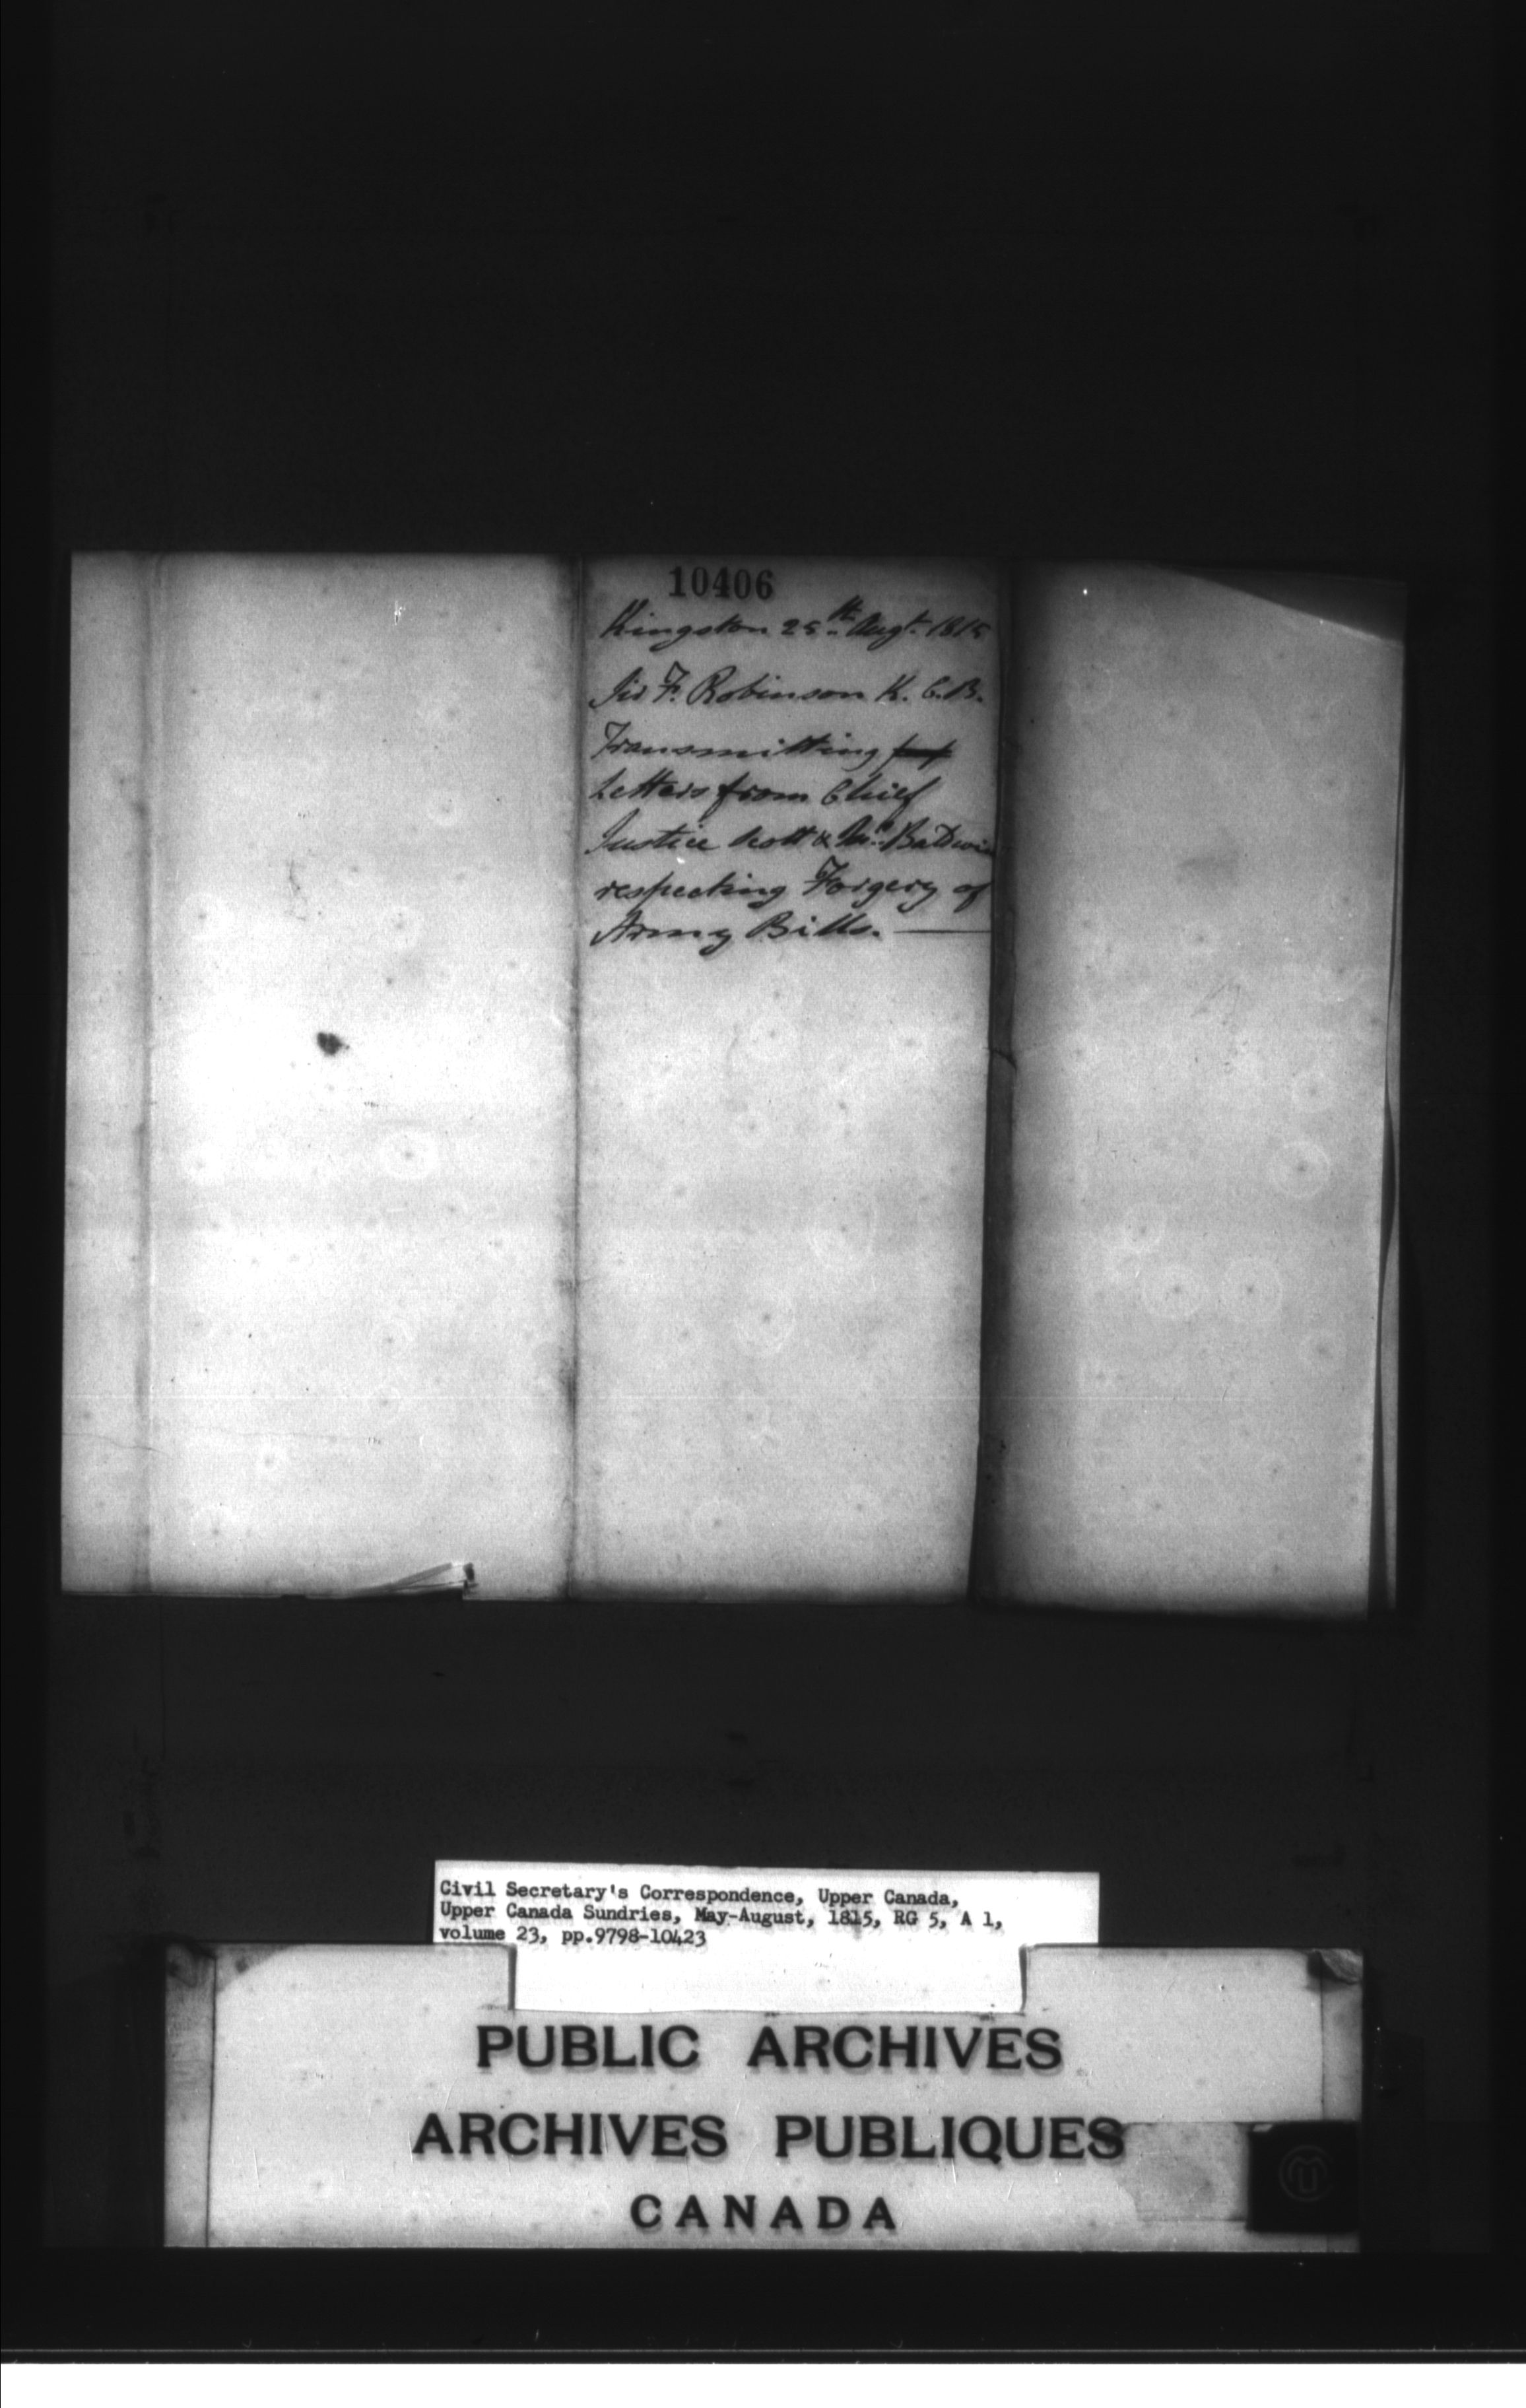 10406
Kingston 25th Augt. 1815
Sir F. Robinson K. C. B.
Transmitting
Letters from Chief
Justice Scott & Mr. Baldwin
respecting Forgery of
Army Bills. —
Civil Secretary's Correspondence, Upper Canada,
Upper Canada Sundries, May-August, 1815, RG 5, A 1,
volume 23, pp.9798-10423
PUBLIC ARCHIVES
ARCHIVES PUBLIQUES
CANADA